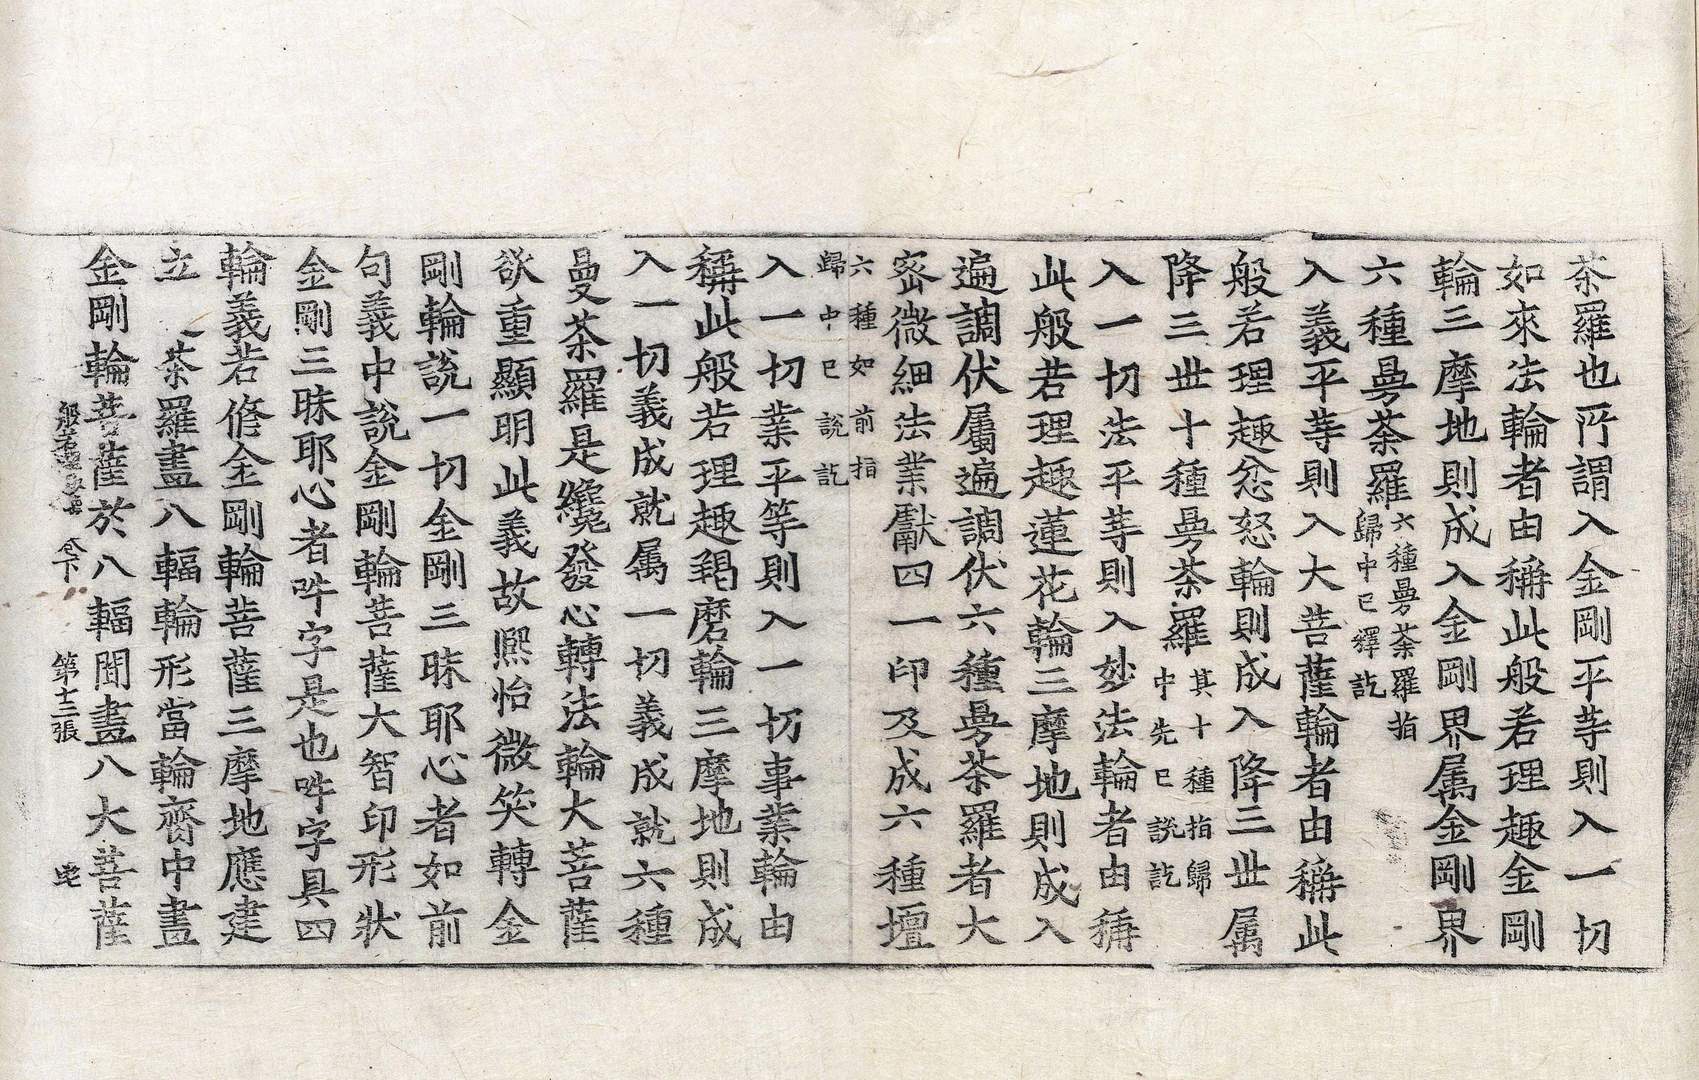 荼羅也所謂入金剛平等則入一切
如來法輪者由稱此般若理趣金剛
輪三摩地則成入金剛界属金剛界
六種曼荼羅六種曼荼羅指
歸中已釋訖
入義平等則入大菩薩輪者由稱此
般若理趣忿怒輪則成入降三世属
降三世十種曼荼羅其十種指歸
中先已說訖
入一切法平等則入妙法輪者由稱
此般若理趣蓮花輪三摩地則成入
遍調伏屬遍調伏六種曼荼羅者大
密微細法業獻四一印及成六種壇
六種如前指
歸中已說訖
入一切業平等則入一切事業輪由
稱此般若理趣羯磨輪三摩地則成
入一切義成就属一切義成就六種
曼荼羅是纔發心轉法輪大菩薩
欲重顯明此義故熙怡微笑轉金
剛輪說一切金剛三昧耶心者如前
句義中說金剛輪菩薩大智印形狀
金剛三昧耶心者吽字是也吽字具四
輪義若修金剛輪菩薩三摩地應建
立荼羅畫八輻輪形當輪齊中畫
金剛輪菩薩於八輻間畫八大菩薩
般若理趣釋 下 第十三張